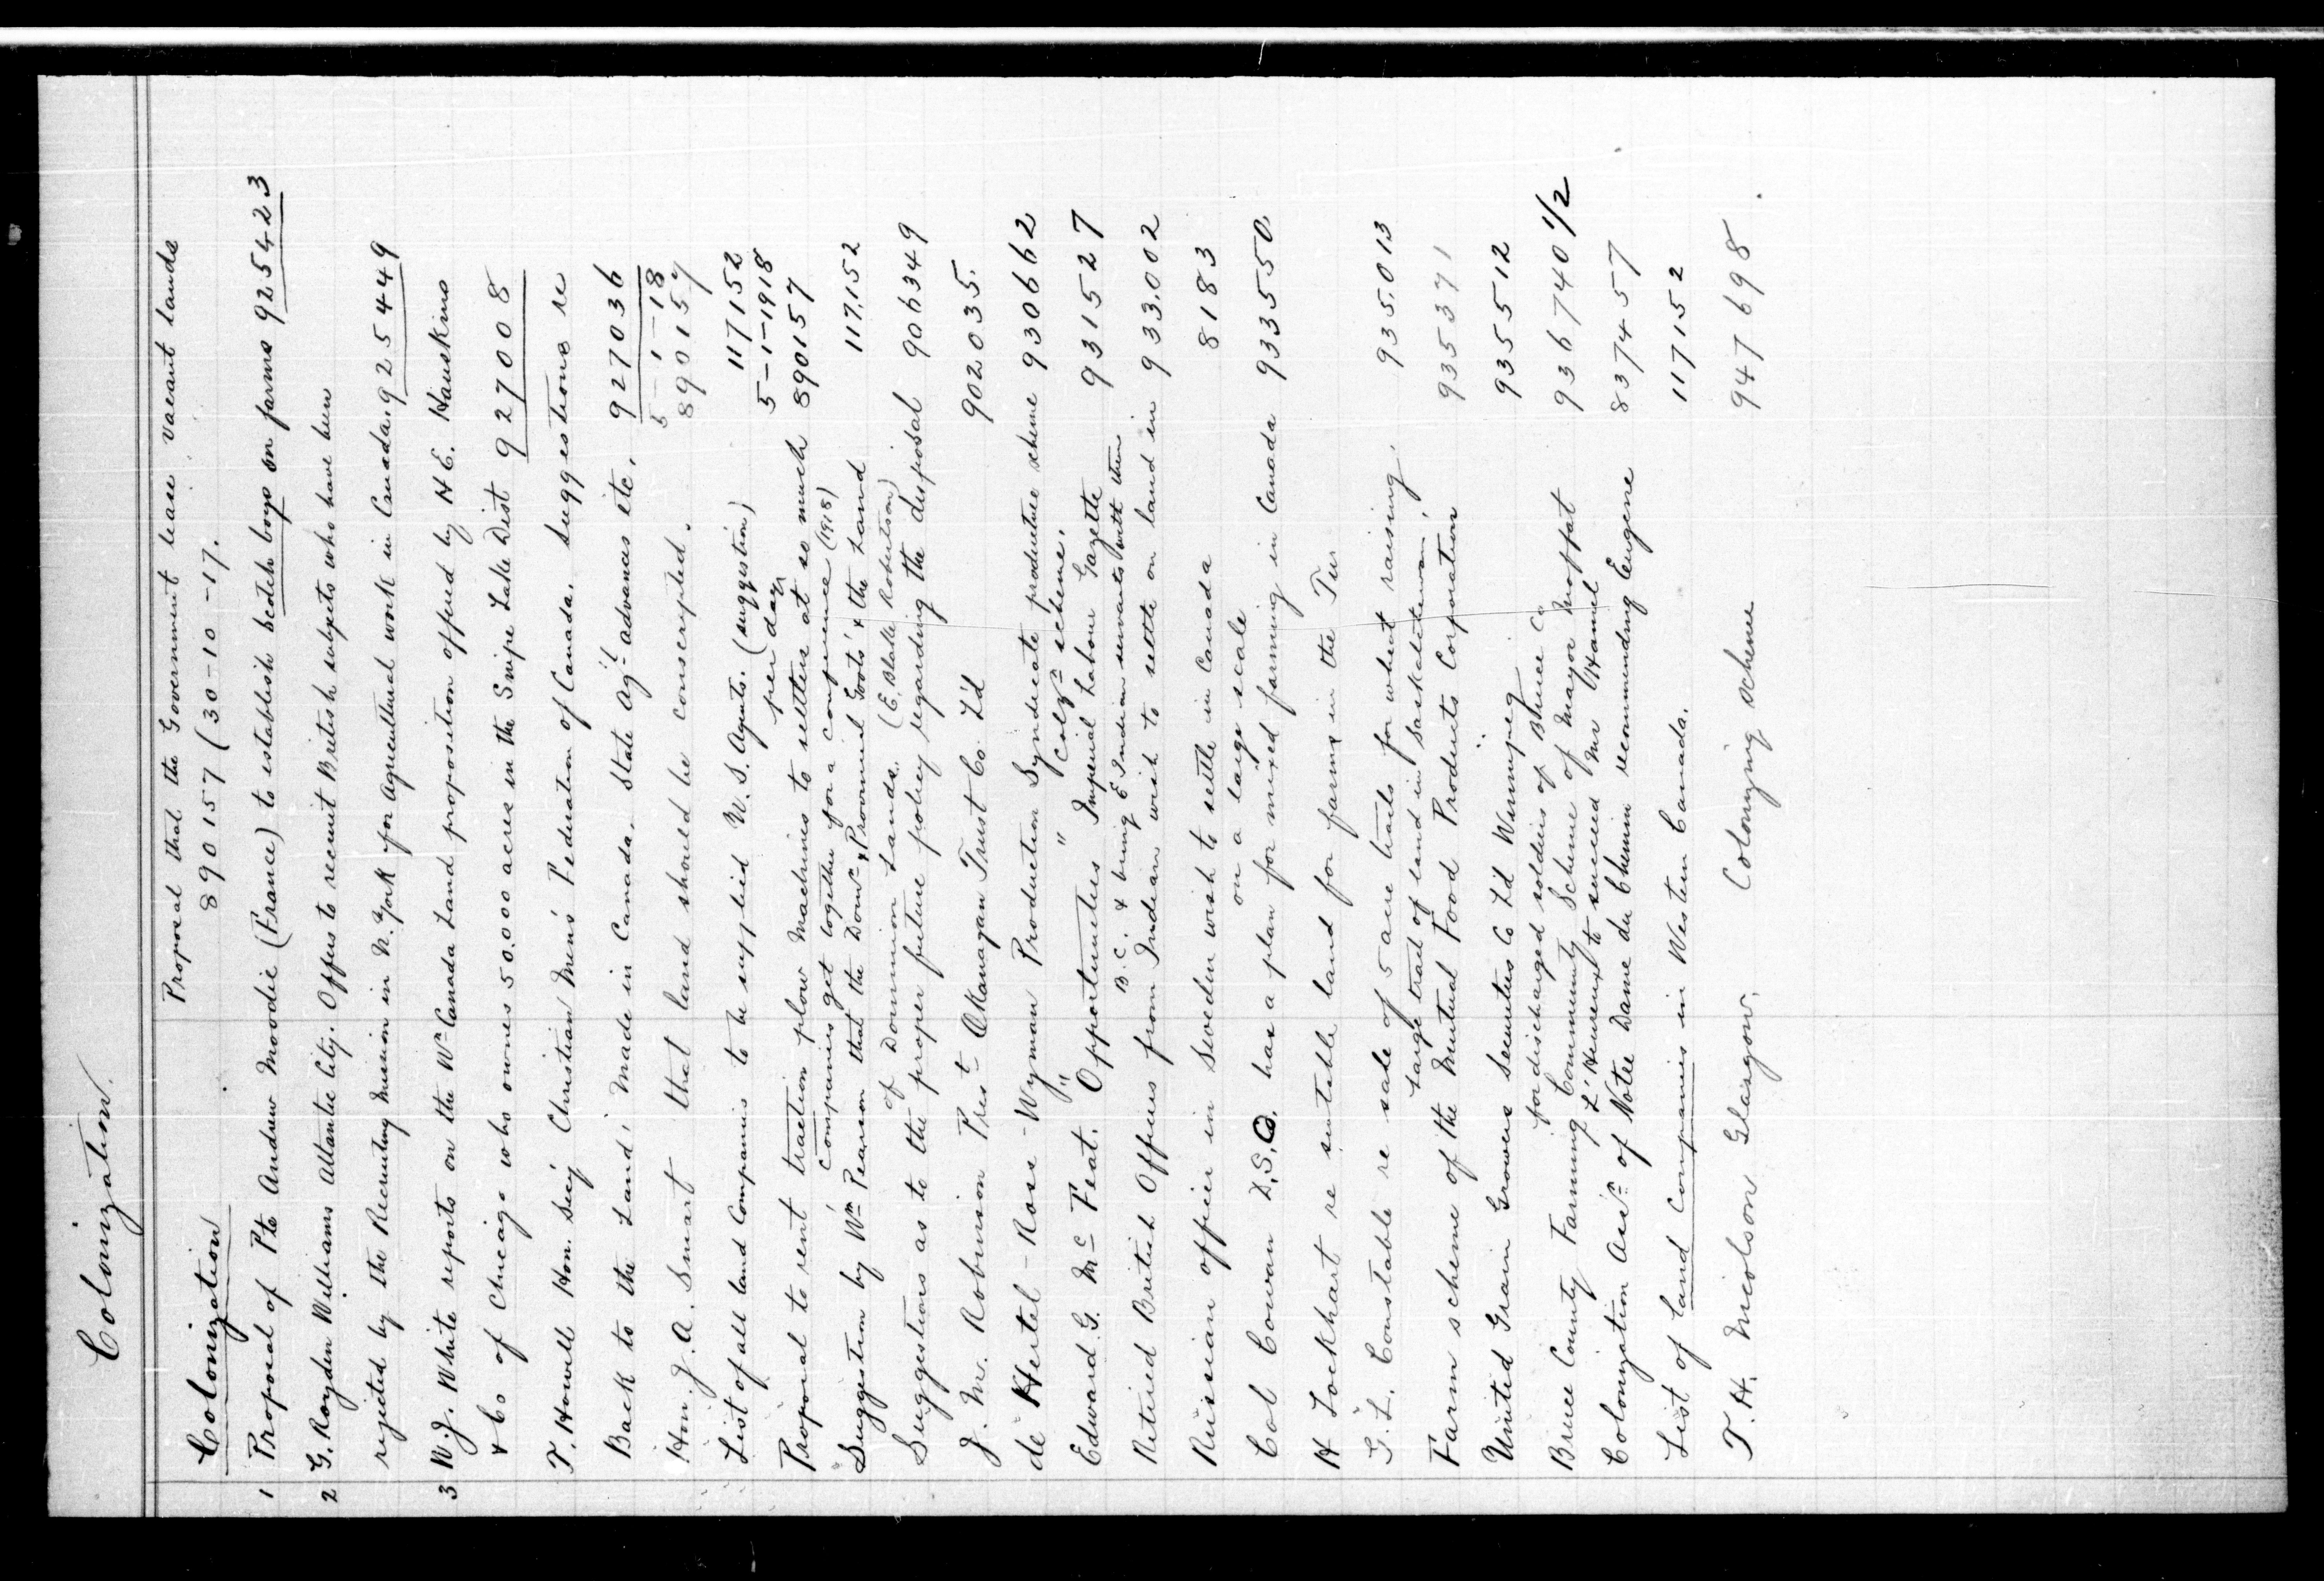 Colonization.
Proposal that the Government lease vacant lands
Colonization 890157 (30-10-17.
1 Proposal of Pte Andrew Moodie (France) to establish Scotch boys on farms 925423
2 G. Royden Williams Atlantic City. Offers to recruit British subjects who have been
rejected by the Recruiting Mission in N. York for agricultural work in Canada. 925449
3 W.J. White reports on the Wn Canada Land proposition offered by H.E. Hauskins
& Co of Chicago who owns 50.000 acres in the Snipe Lake Dist 927008
T. Howell Hon. Secy Christian Men's Federation of Canada. suggestions re
Back to the Land; Made in Canada. State Agl advances etc. 927036
5-1-18
Hon. J. A. Smart that land should be conscripted. 890157
List of all land companies to be supplied U.S. Agents. (suggestion) 117152
per day 5-1-1918
Proposal to rent traction plow machines to settlers at so much 890157
companies get together for a conference (1918)
Suggestion by Wm Pearson that the Domn & Provincial Govts' & the Land 117,152
of Dominion Lands. (E. Blake Robertson)
Suggestions as to the proper future policy regarding the disposal 906349
J. M. Robinson Prest Okanagan Trust Co. L'd 902035.
de Hertel-Rose-Wyman Production Syndicate productive scheme 930662
" " Colzn scheme.
Edward G. McFeat. Opportunities Imperial Labour Gazette 931527
B.C. & bring E Indian servants with them
Retired British Officers from India wish to settle on land in 933,002
Russian officer in Sweden wish to settle in Canada 8183
on a large scale
Col Cowan D.S.O. has a plan for mixed farming in Canada 933550
H Lockhart re suitable land for farms in the
G.L. Constable re sale of 5 acre tracts for wheat raising. 935,013
Large tract of land in Saskatchewan.
Farm scheme of the Mutual Food Products Corporation 935371
United Grain Growers Securities Co L'd Winnipeg 935512
for discharged soldiers of Bruce Co
Bruce County Farming Community Scheme of Mayor Moffat 936740 1/2
L'Heureux to succeed Mr Hamel
Colonization Assn of Notre Dame du Chemin recommending Eugene 837457
List of land companies in Western Canada. 117152
T.H. Nicolson Glasgow. Colonizing scheme 947698